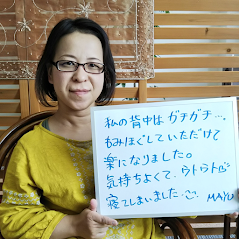 私の背中はガチガチ…。
もみほぐしていただけて
楽になりました。
気持ちよくて、ウトウト
寝てしまいました
MAYU